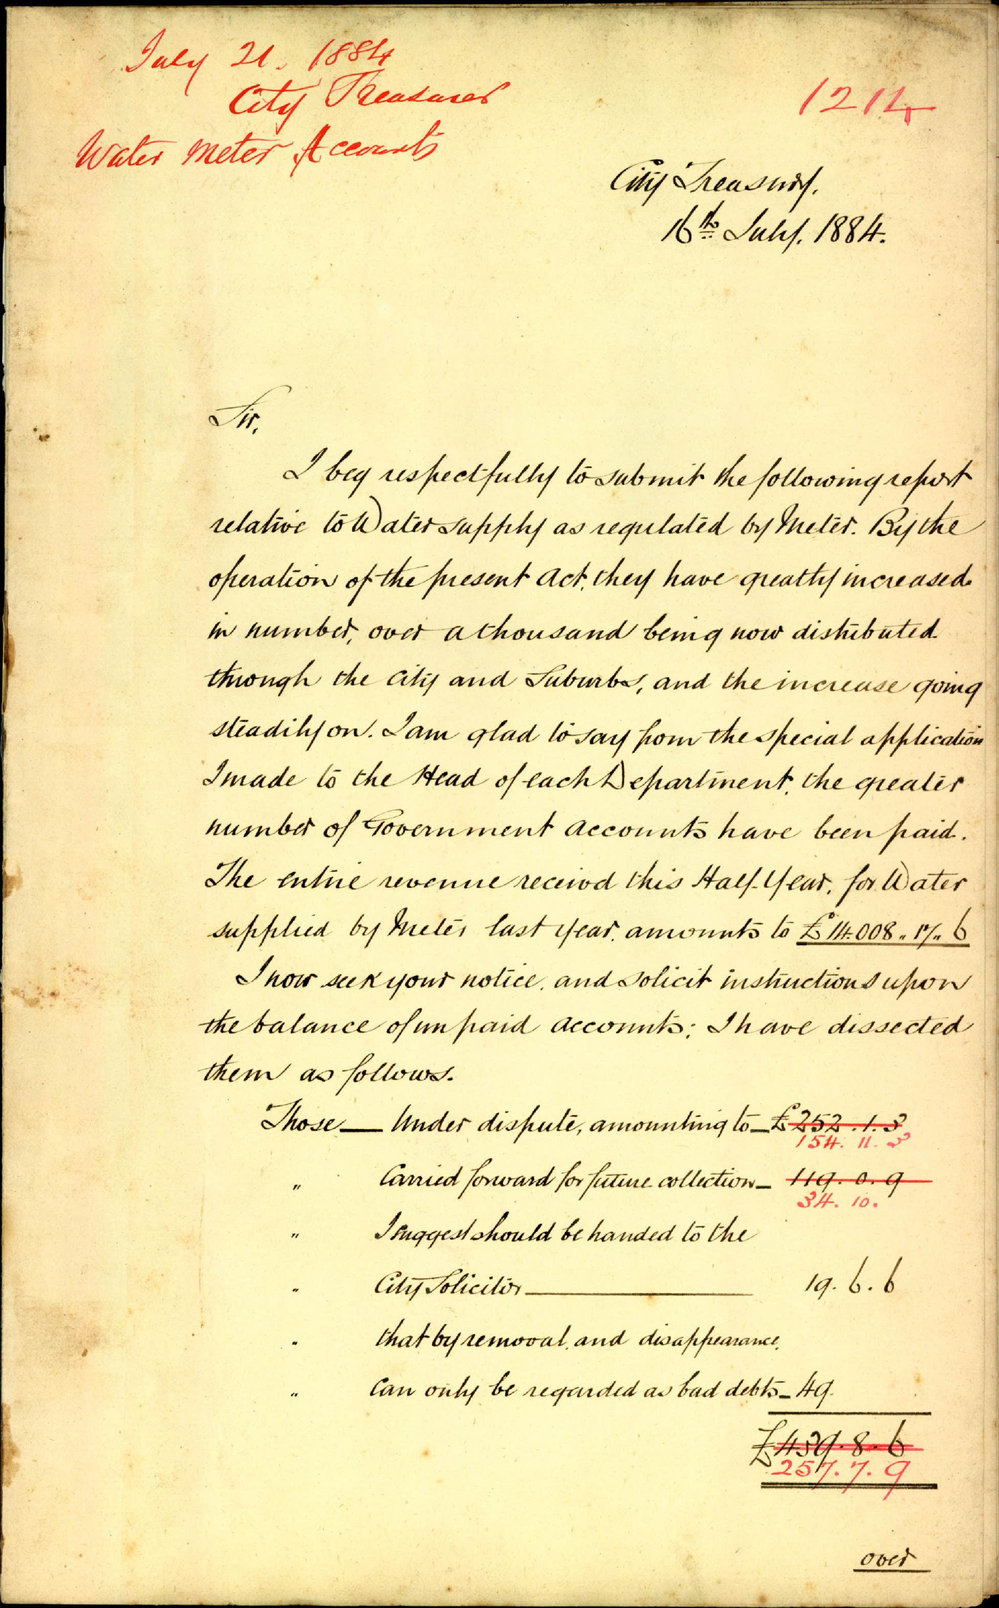 July 21. 1884
City Treasurer
Water Meter Accounts
1214
City Treasury.
16th July. 1884.
Sir,
I beg respectfully to submit the following report
relative to Water supply as regulated by Meter. By the
operation of the present Act, they have greatly increased
in number, over a thousand being now distributed
through the City and Suburbs, and the increase going
steadily on. I am glad to say from the special application
I made to the Head of each Department, the greater
number of Government Accounts have been paid.
The entire revenue receivd this Half-Year, for Water
supplied by Meter last year, amounts to £14.008.. 17.. 6
I now seek your notice, and solicit instructions upon
the balance of unpaid Accounts; I have dissected
them as follows.
Those — Under dispute, amounting to — £252.1.3
154. 11. 3
" Carried forward for future collection — 119.0.9
34. 10.
" I suggest should be handed to the
" City Solicitor — 19. 6. 6
" that by removal, and disappearance,
" can only be regarded as bad debts — 49.
£439.8.6
257.7.9
over